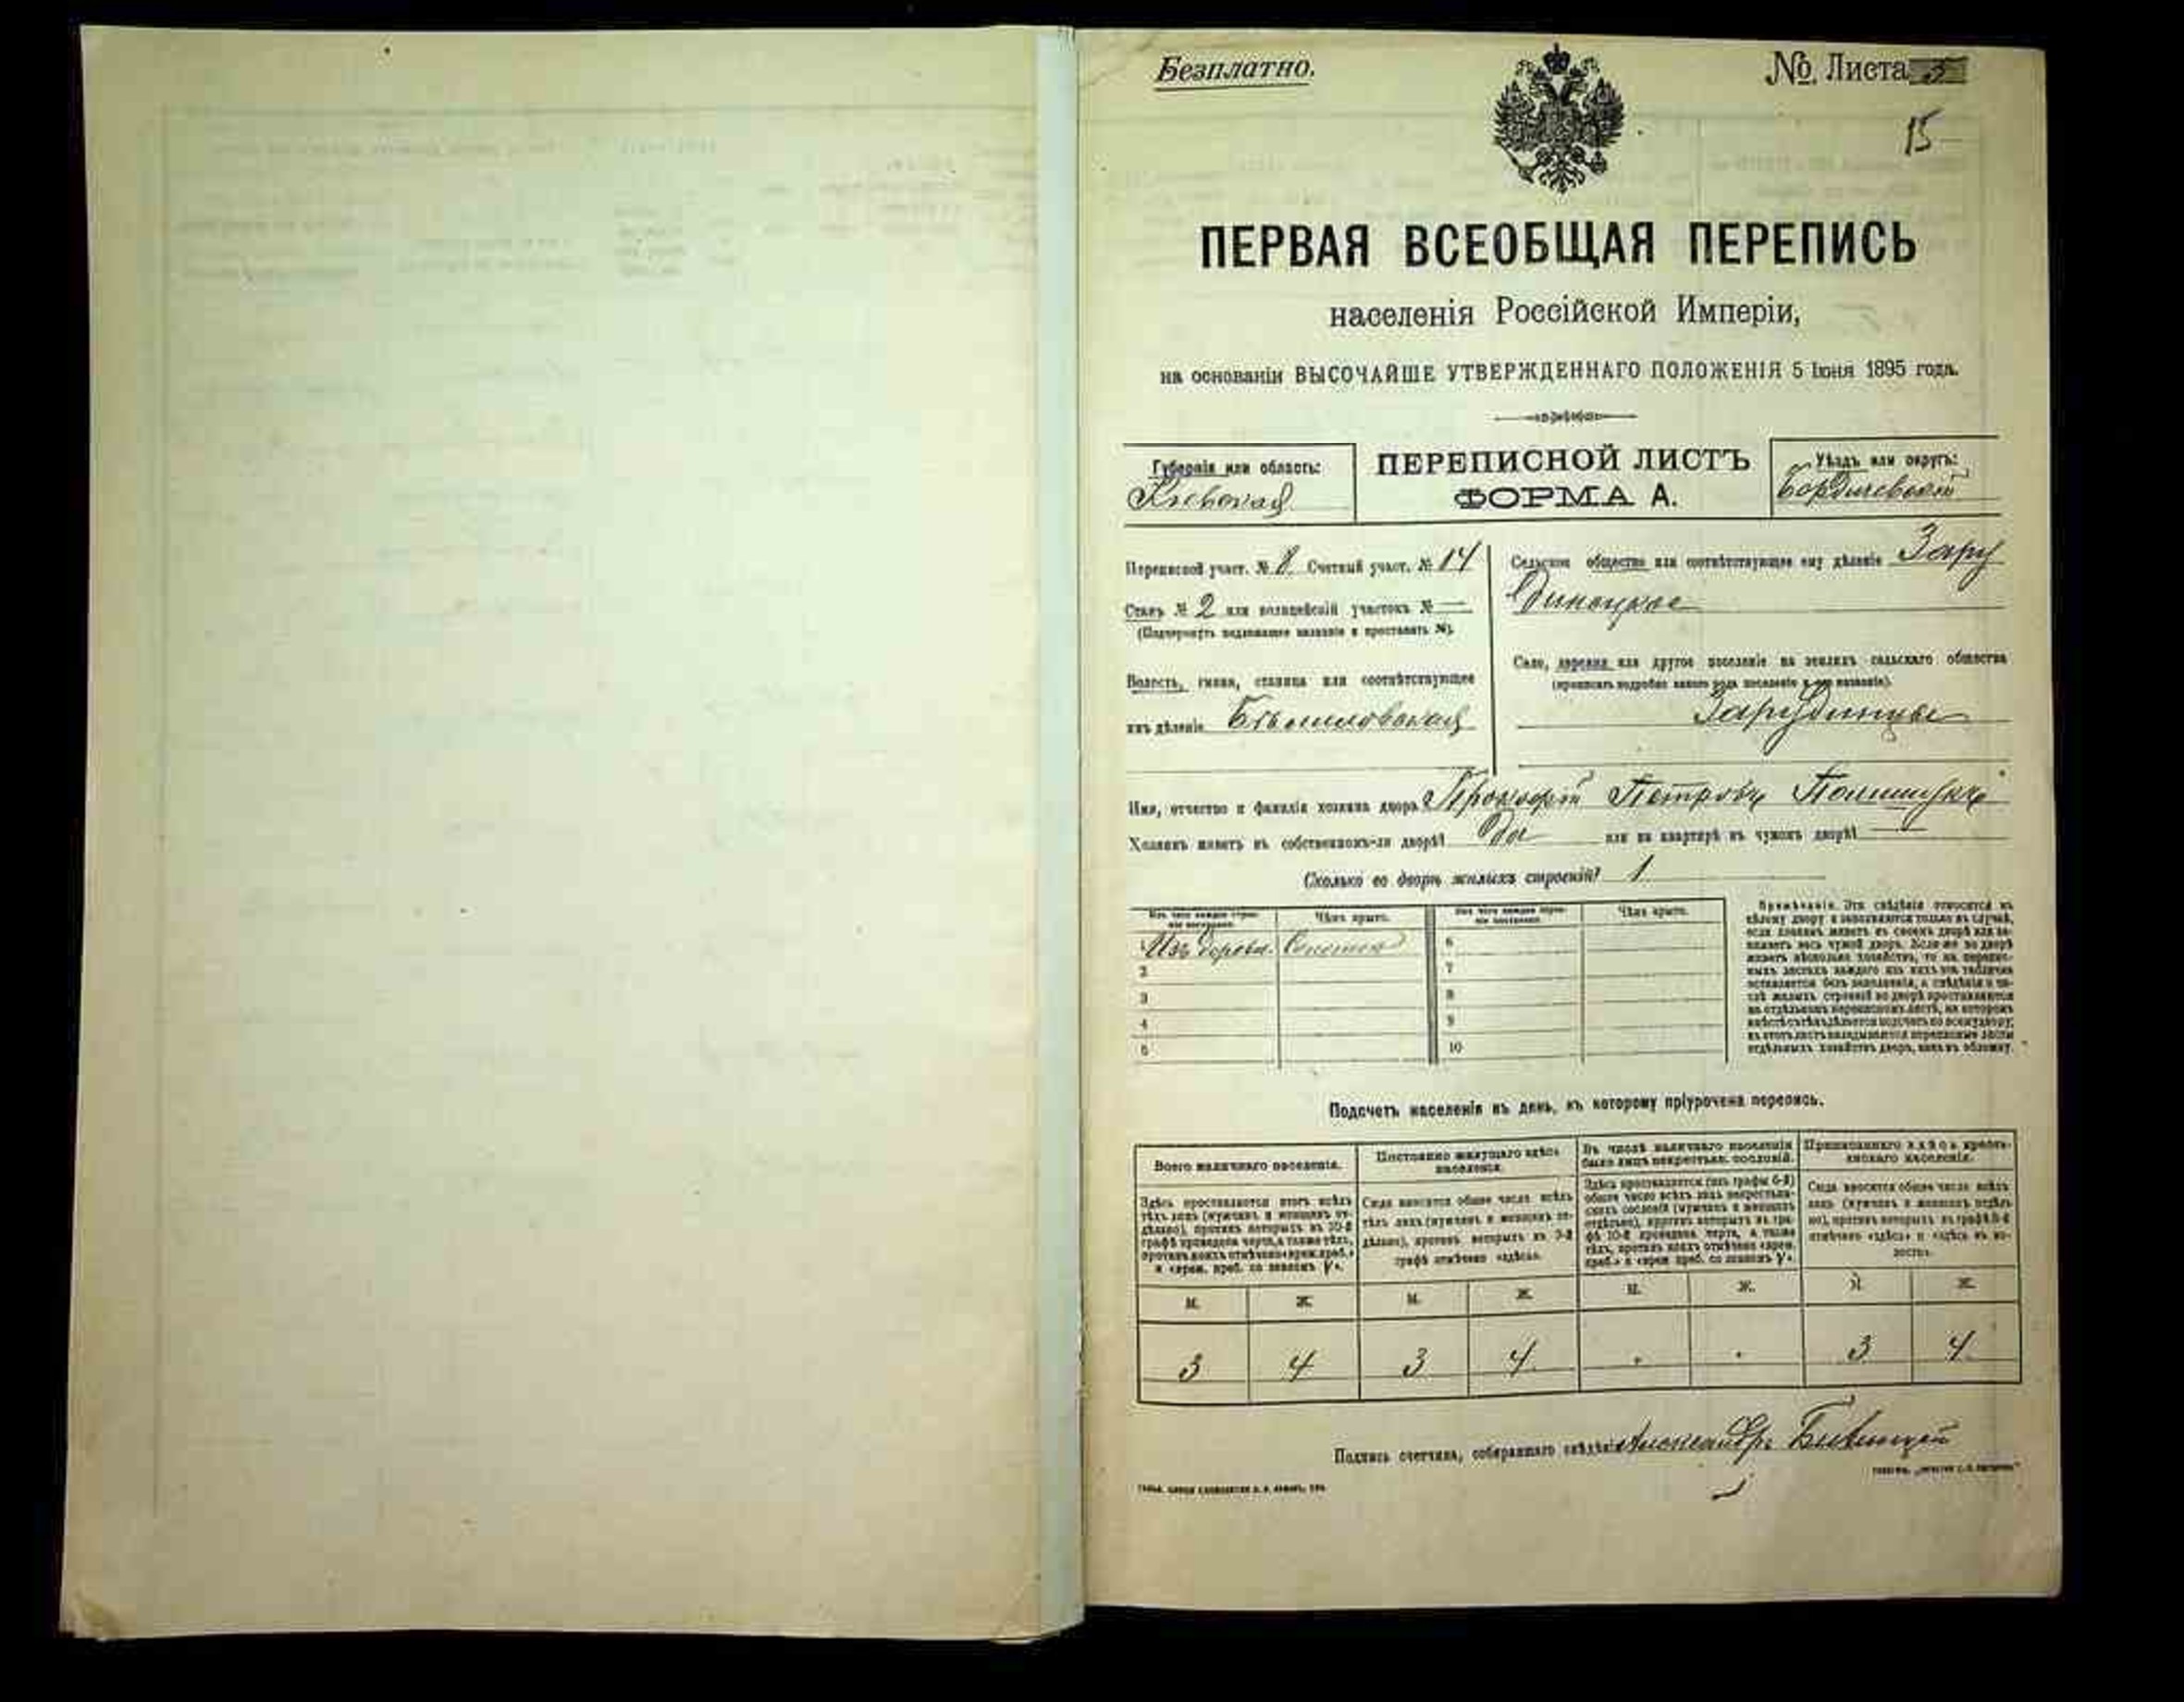 Безплатно.
№ Листа 3
15
ПЕРВАЯ ВСЕОБЩАЯ ПЕРЕПИСЬ
населенія Россійской Имперіи,
на основаніи ВЫСОЧАЙШЕ УТВЕРЖДЕННАГО ПОЛОЖЕНІЯ 5 Іюня 1895 года.
Губернія или область:
Кіевская
ПЕРЕПИСНОЙ ЛИСТЪ
ФОРМА А.
Уѣздъ или округъ:
Бердичевскій
Переписной участ. № 8 Счетный участ. № 14
Станъ № 2 или полицейскій участокъ № —
(Подчеркнуть подлежащее названіе и проставить №).
Волость, гмина, станица или соотвѣтствующее
имъ дѣленіе
Сельское общество или соотвѣтствующее ему дѣленіе Зару
динецкое
Село, деревня или другое поселеніе на земляхъ сельскаго общества
(прописать подробно какого рода поселеніе и его названіе).
Зарудинцы
Имя, отчество и фамилія хозяина двора Прокофій Петровъ Полищукъ
Хозяинъ живетъ въ собственномъ-ли дворѣ? Да или на квартирѣ въ чужомъ дворѣ? —
Сколько во дворѣ жилыхъ строеній? 1
Изъ чего каждое строе-
ніе построено.
Чѣмъ крыто.
Изъ чего каждое строе-
ніе построено.
Чѣмъ крыто.
Изъ дерева. Соломой 6
2 7
3 8
4 9
5 10
Примѣчаніе. Эти свѣдѣнія относятся къ
цѣлому двору и заполняются только въ случаѣ,
если хозяинъ живетъ въ своемъ дворѣ или за-
нимаетъ весь чужой дворъ. Если-же во дворѣ
живетъ нѣсколько хозяйствъ, то на перепис-
ныхъ листахъ каждаго изъ нихъ эта табличка
оставляется безъ заполненія, а свѣдѣнія о чи-
слѣ жилыхъ строеній во дворѣ проставляются
на отдѣльномъ переписномъ листѣ, на которомъ
вмѣстѣ съ тѣмъ дѣлается подсчетъ по всему двору;
въ этотъ листъ вкладываются переписные листы
отдѣльныхъ хозяйствъ двора, какъ въ обложку.
Подсчетъ населенія въ день, къ которому пріурочена перепись.
Всего наличнаго населенія.
Постоянно живущаго здѣсь
населенія.
Въ числѣ наличнаго населенія
было лицъ некрестьян. сословій.
Приписаннаго здѣсь кресть-
янскаго населенія.
Здѣсь проставляется итогъ всѣхъ
тѣхъ лицъ (мужчинъ и женщинъ от-
дѣльно), противъ которыхъ въ 10-й
графѣ проведена черта, а также тѣхъ,
противъ коихъ отмѣчено «врем. преб.»
и «врем. преб. со знакомъ V».
Сюда вносится общее число всѣхъ
тѣхъ лицъ (мужчинъ и женщинъ от-
дѣльно), противъ которыхъ въ 9-й
графѣ отмѣчено «здѣсь».
Здѣсь проставляется (изъ графы 6-й)
общее число всѣхъ лицъ некрестьян-
скихъ сословій (мужчинъ и женщинъ
отдѣльно), противъ которыхъ въ гра-
фѣ 10-й проведена черта, а также
тѣхъ, противъ коихъ отмѣчено «врем.
преб.» и «врем. преб. со знакомъ V».
Сюда вносится общее число всѣхъ
лицъ (мужчинъ и женщинъ отдѣль-
но), противъ которыхъ въ графѣ 8-й
отмѣчено «здѣсь» и «здѣсь въ во-
лости».
М. Ж. М. Ж. М. Ж. М. Ж.
3 4 3 4 . . 3 4
Подпись счетчика, собиравшаго свѣдѣнія Александръ